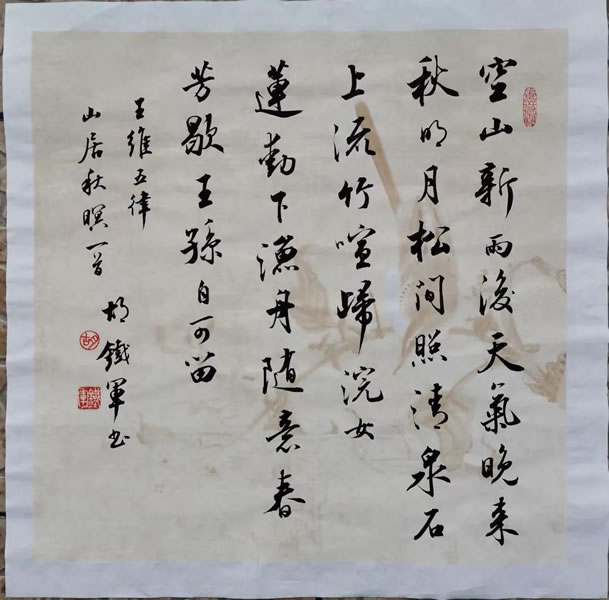 空山新雨後天氣晚来
秋明月松间照清泉石
上流竹喧歸浣女
蓮動下漁舟随意春
芳歇王孫自可留
王維五律
山居秋暝一首
胡鐵軍书